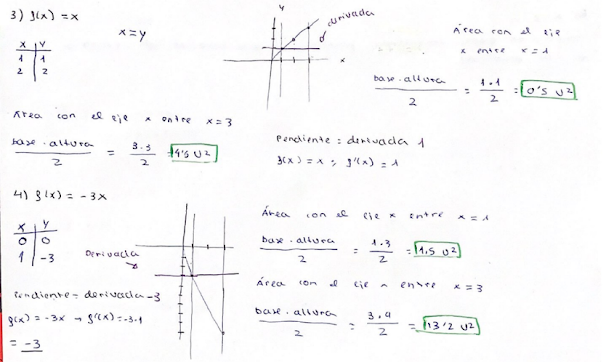 3) f(x) = x
x = y
X Y
1 1
2 2
derivada
x
Y
Área con el eje
x entre x = 1
base·altura / 2 = 1·1 / 2 = 0'5 U²
Área con el eje x entre x = 3
base·altura / 2 = 3·3 / 2 = 4'5 U²
Pendiente = derivada 1
f(x) = x ; f'(x) = 1
4) f(x) = -3x
X Y
0 0
1 -3
Derivada
Pendiente = derivada -3
f(x) = -3x → f'(x) = -3·1
= -3
Área con el eje x entre x = 1
base·altura / 2 = 1·3 / 2 = 1.5 U²
Área con el eje x entre x = 3
base·altura / 2 = 3·9 / 2 = 13'2 U²